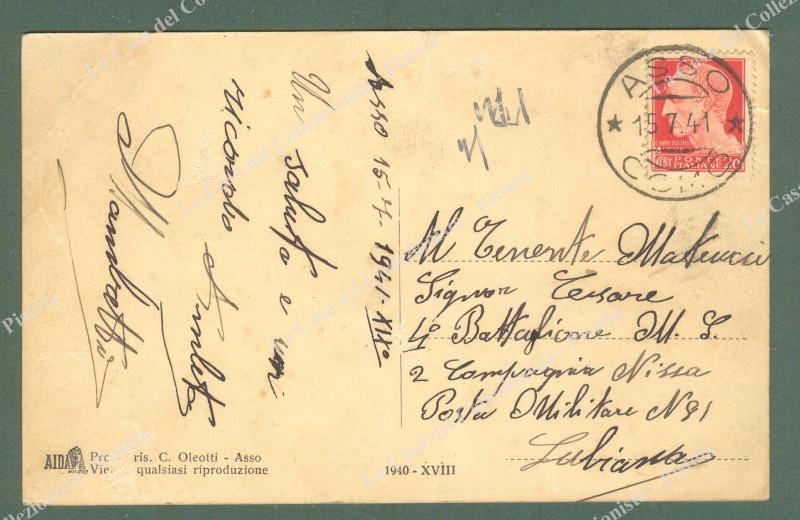 Asso 15-7-1941-XIX°
Un saluto e un
ricordo
ASSO
15.7.41
COMO
POSTE
ITALIANE
20
Tenente Mateucci
Signor Cesare
4° Battaglione M. S.
2 Compagnia Nissa
Posta Militare N 91
Lubiana
AIDA
ris. C. Oleotti - Asso
qualsiasi riproduzione
1940 - XVIII
La Casa del Collezionista Pistoia